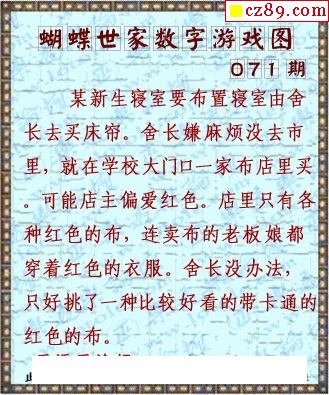 cz89.com
蝴蝶世家数字游戏图
071期
某新生寝室要布置寝室由舍
长去买床帘。舍长嫌麻烦没去市
里,就在学校大门口一家布店里买
。可能店主偏爱红色。店里只有各
种红色的布,连卖布的老板娘都
穿着红色的衣服。舍长没办法,
只好挑了一种比较好看的带卡通的
红色的布。